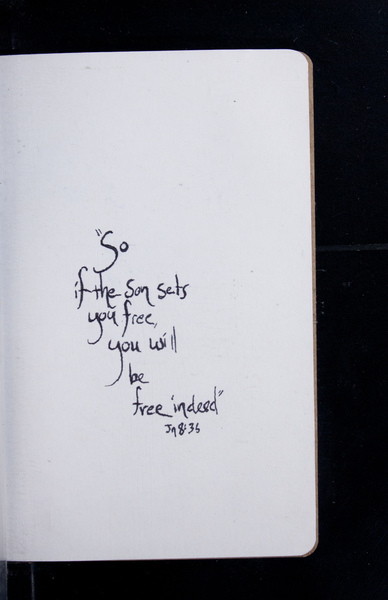 "So
if the Son sets
you free,
you will
be
free indeed"
Jn 8:36